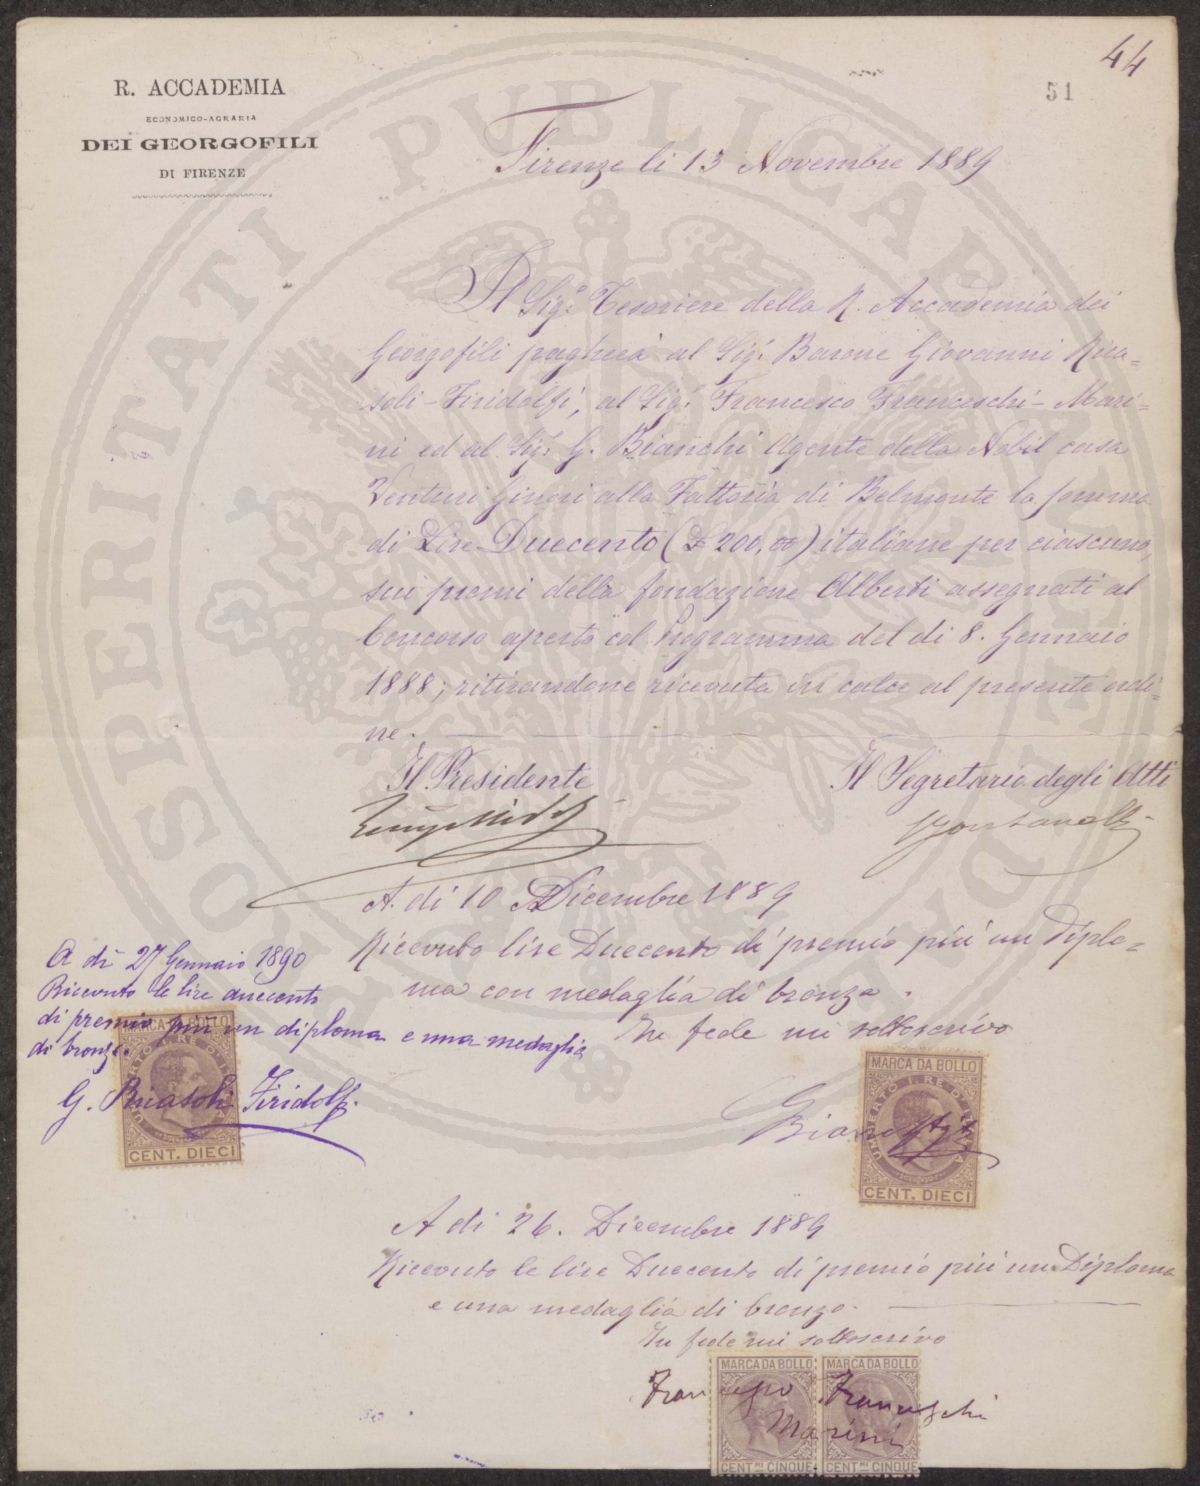 44
51
R. ACCADEMIA
ECONOMICO-AGRARIA
DEI GEORGOFILI
DI FIRENZE
PROSPERITATI PUBLICAE AUGENDAE
Firenze li 13 Novembre 1889
Il Sig.r Tesoriere della R. Accademia dei
Georgofili pagherà al Sig.r Barone Giovanni Rica-
soli-Firidolfi, al Sig.r Francesco Franceschi-Mari-
ni ed al Sig.r G. Bianchi Agente della Nobil casa
Venturi Ginori alla Fattoria di Belmonte la somma
di Lire Duecento (£ 200,00) italiane per ciascuno,
sui premi della fondazione Alberti assegnati al
Concorso aperto col Programma del di 8. Gennaio
1888; ritirandone ricevuta in calce al presente ordi-
ne.
Il Presidente
Il Segretario degli Atti
A. di 10 Dicembre 1889
Ricevuto lire Duecento di premio più un diplo-
ma con medaglia di bronzo.
In fede mi sottoscrivo
G Bianchi
MARCA DA BOLLO
UMBERTO I. RE D'ITALIA
CENT. DIECI
A dì 27 Gennaio 1890
Ricevuto le lire duecento
di premio più un diploma e una medaglia
di bronzo.
G. Ricasoli Firidolfi
MARCA DA BOLLO
UMBERTO I. RE D'ITALIA
CENT. DIECI
A di 26. Dicembre 1889
Ricevuto le lire Duecento di premio più un Diploma
e una medaglia di bronzo.
In fede mi sottoscrivo
Francesco Franceschi
Marini
MARCA DA BOLLO MARCA DA BOLLO
CENT.MI CINQUE CENT.MI CINQUE